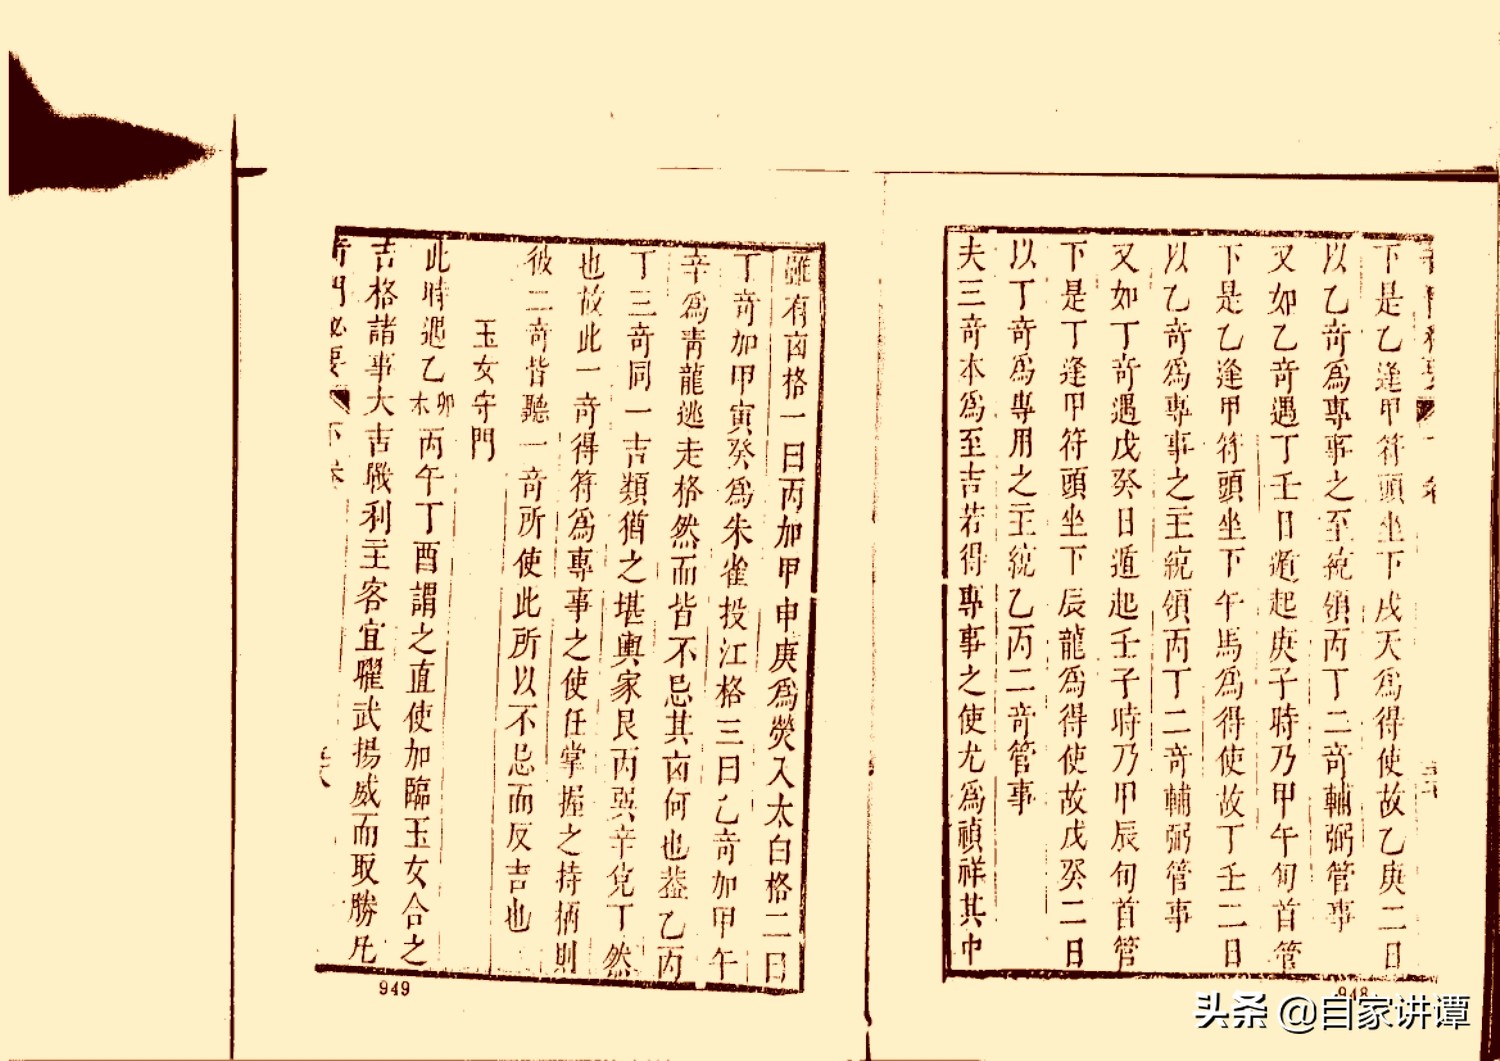 下是乙逢甲符頭坐下戌天爲得使故乙庚二日
以乙奇爲專事之至統領丙丁二奇輔弼管事
又如乙奇遇丁壬日遁起庚子時乃甲午旬首管
下是乙逢甲符頭坐下午馬爲得使故丁壬二日
以乙奇爲專事之主統領丙丁二奇輔弼管事
又如丁奇遇戊癸日遁起壬子時乃甲辰旬首管
下是丁逢甲符頭坐下辰龍爲得使故戊癸二日
以丁奇爲專用之主統乙丙二奇管事
夫三奇本爲至吉若得專事之使尤爲禎祥其中
948
雖有凶格一曰丙加甲申庚爲熒入太白格二曰
丁奇加甲寅癸爲朱雀投江格三曰乙奇加甲午
辛爲青龍逃走格然而皆不忌其凶何也葢乙丙
丁三奇同一吉類猶之堪輿家艮丙巽辛兌丁然
也故此一奇得符爲專事之使任掌握之持柄則
彼二奇皆聽一奇所使此所以不忌而反吉也
玉女守門
此時遇乙卯木丙午丁酉謂之直使加臨玉女合之
吉格諸事大吉職利主客宜曜武揚威而取勝凡
奇門秘要
949
头条 @自家讲谭